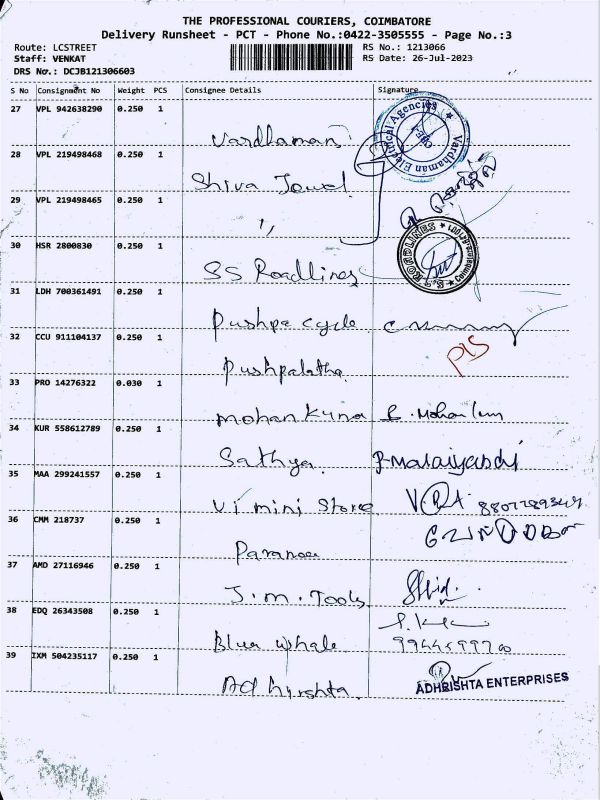 THE PROFESSIONAL COURIERS, COIMBATORE
Delivery Runsheet - PCT - Phone No.:0422-3505555 - Page No.:3
Route: LCSTREET RS No.: 1213066
Staff: VENKAT RS Date: 26-Jul-2023
DRS No.: DCJB121306603
S No Consignment No Weight PCS Consignee Details Signature
27 VPL 942638290 0.250 1
Vardhaman
Vardhaman Electrical Agencies CBE
28 VPL 219498468 0.250 1
Shiva Jewel
29 VPL 219498465 0.250 1
"
30 HSR 2800830 0.250 1
SS Roadlines
S.S. ROADLINES Coimbatore
31 LDH 700361491 0.250 1
Pushpa cycle
32 CCU 911104137 0.250 1
Pushpalatha
33 PRO 14276322 0.030 1
mohan Kuma
34 KUR 558612789 0.250 1
Sathya
35 MAA 299241557 0.250 1
Vi mini Store
36 CMM 218737 0.250 1
37 AMD 27116946 0.250 1
J.m. Tools
38 EDQ 26343508 0.250 1
Blue Whale
39 IXM 504235117 0.250 1
Adhirshta
ADHRISHTA ENTERPRISES